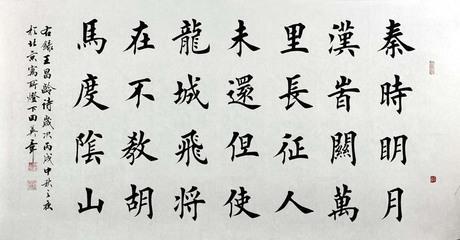 秦時明月
漢旹關萬
里長征人
未還但使
龍城飛將
在不教胡
馬度陰山
右錄王昌齡詩歲次丙戌中秋之夜
於北京寓所燈下田英章